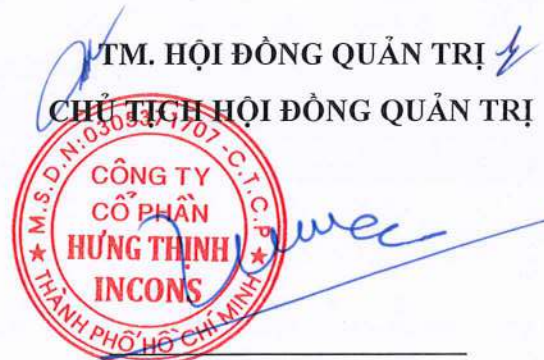 TM. HỘI ĐỒNG QUẢN TRỊ
CHỦ TỊCH HỘI ĐỒNG QUẢN TRỊ
M.S.D.N:0305371707-C.T.C.P
CÔNG TY
CỔ PHẦN
HƯNG THỊNH
INCONS
THÀNH PHỐ HỒ CHÍ MINH